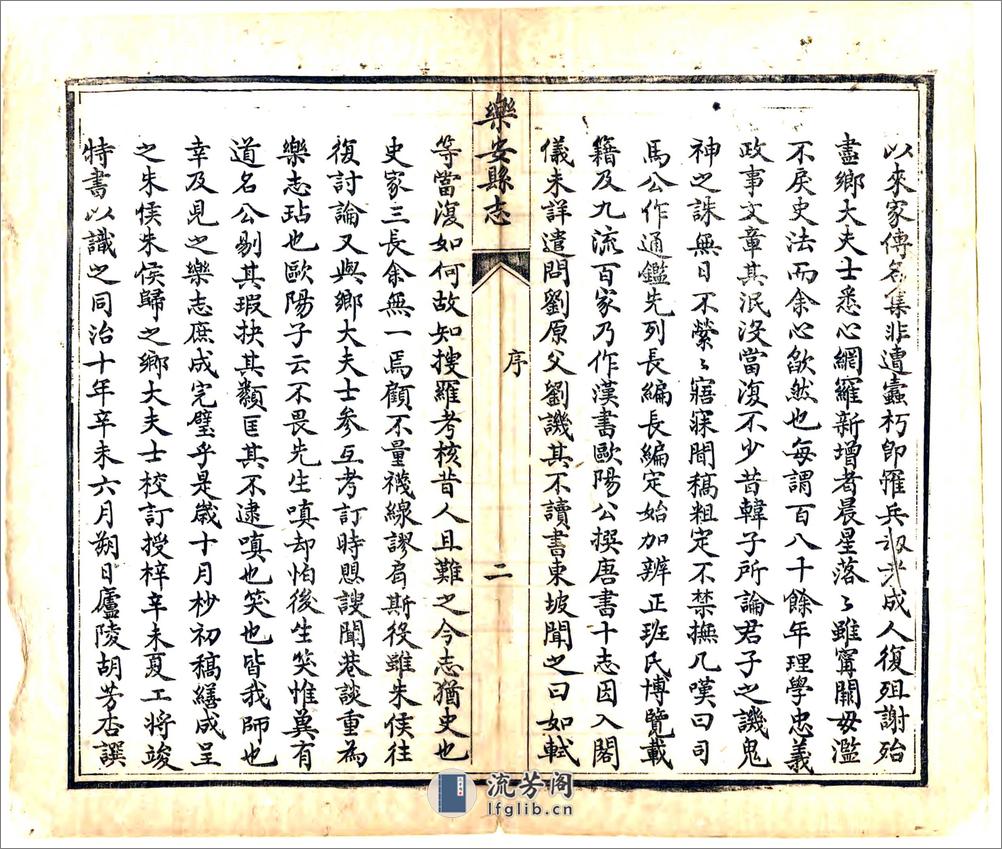 以來家傳名集非遭蠹朽即罹兵
成人復殂謝殆
盡鄉大夫士悉心網羅新增者晨星落〻雖寗闕毋濫
不戾史法而余心欿然也每謂百八十餘年理學忠義
政事文章其泯沒當復不少昔韓子所論君子之譏鬼
神之誅無日不縈〻寤寐間稿粗定不禁撫几嘆曰司
馬公作通鑑先列長編長編定始加辨正班氏博覽載
籍及九流百家乃作漢書歐陽公撰唐書十志因入閣
儀未詳遣問劉原父劉譏其不讀書東坡聞之曰如軾
樂安縣志
序
二
等當復如何故知搜羅考核昔人且難之今志猶史也
史家三長余無一焉顧不量襪線謬肩斯役雖朱侯往
復討論又與鄉大夫士參互考訂時愳謏聞巷談重為
樂志玷也歐陽子云不畏先生嗔却怕後生笑惟兾有
道名公剔其瑕抉其纇匡其不逮嗔也笑也皆我師也
幸及見之樂志庶成完璧乎是歲十月杪初稿繕成呈
之朱侯朱侯歸之鄉大夫士校訂授梓辛未夏工將竣
特書以識之同治十年辛未六月朔日廬陵胡芳杏譔
流芳阁
lfglib.cn